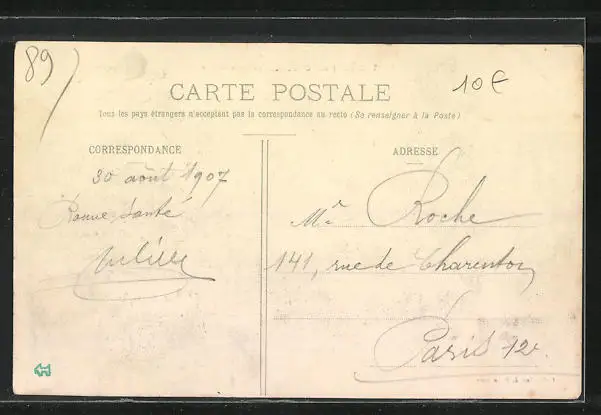 89)
10€
CARTE POSTALE
Tous les pays étrangers n'acceptent pas la correspondance au recto (Se renseigner à la Poste)
CORRESPONDANCE
30 août 1907
Bonne Santé
ADRESSE
Mr Roche
141, rue de Charenton
Paris 12e